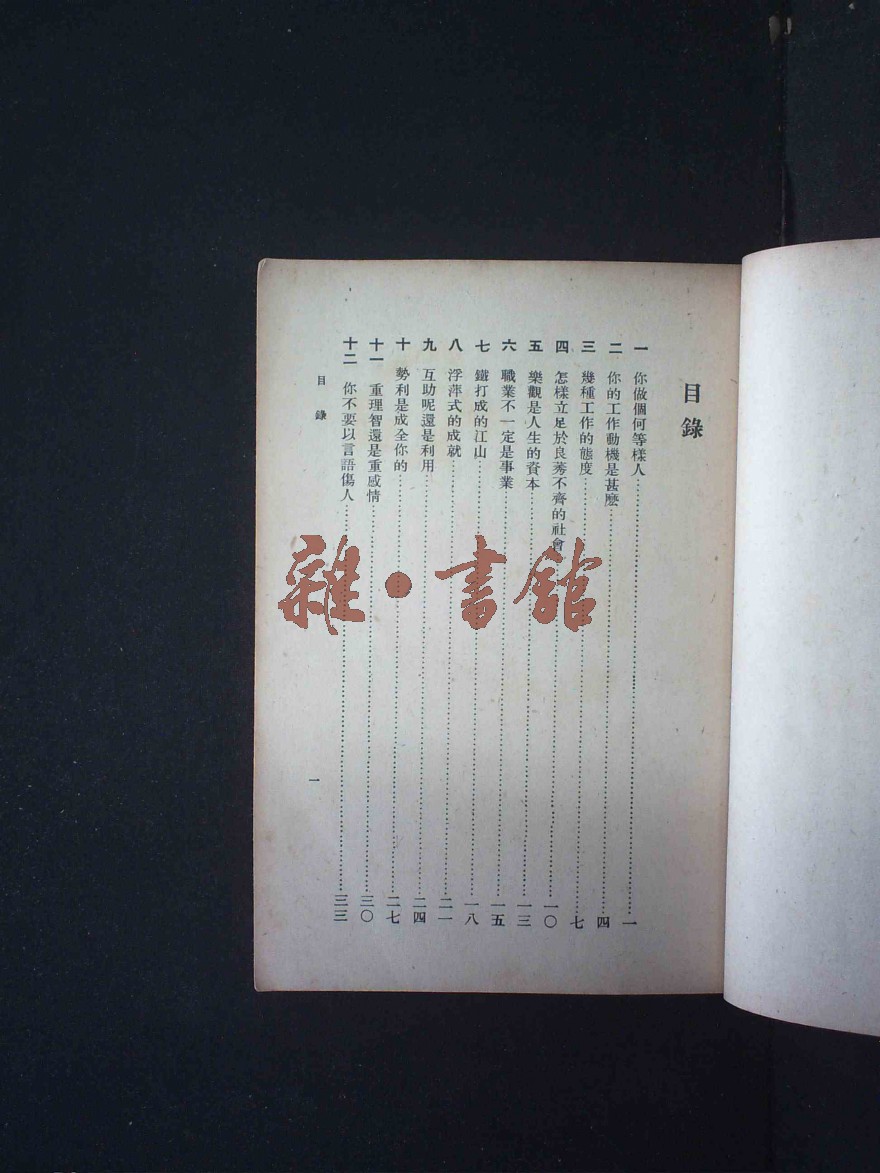 目錄
一 你做個何等樣人 一
二 你的工作動機是甚麽 四
三 幾種工作的態度 七
四 怎樣立足於良莠不齊的社會 一〇
五 樂觀是人生的資本 一三
六 職業不一定是事業 一五
七 鐵打成的江山 一八
八 浮萍式的成就 二一
九 互助呢還是利用 二四
十 勢利是成全你的 二七
十一 重理智還是重感情 三〇
十二 你不要以言語傷人 三三
目錄
一
雜·書館